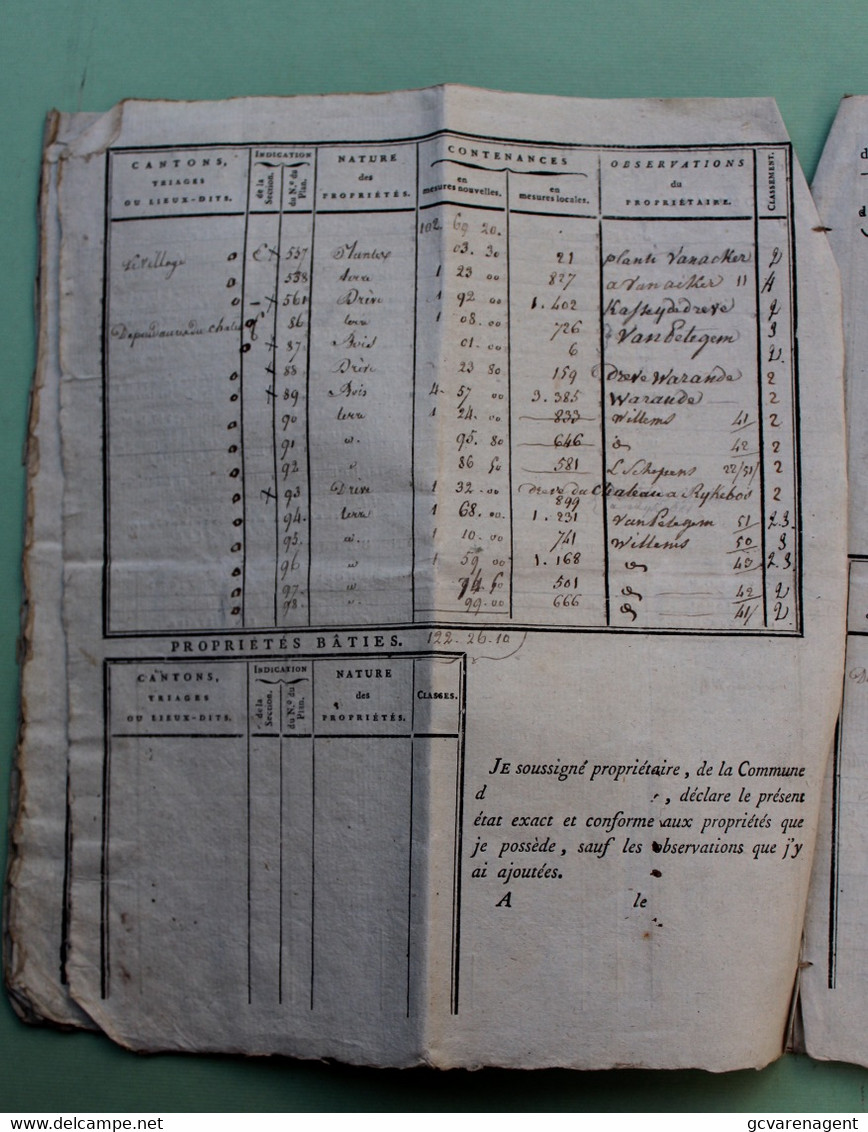 CANTONS, TRIAGES OU LIEUX-DITS. INDICATION de la Section. du N.º du Plan. NATURE des PROPRIÉTÉS. CONTENANCES en mesures nouvelles. en mesures locales. OBSERVATIONS du PROPRIÉTAIRE. CLASSEMENT.
102. 69 20.
Le Village o C + 537 03. 30 21 plante Vanacker 2
o 538 terre 1 23 00 827 a Vanaiker 11 4
o - + 561 Drève 1 92 00 1. 402 Kasseydedreve 2
86 terre 1 08. 00 726 VanPetegem 3
o + 87 Bois 01. 00 6 2.
o + 88 Drève 23 80 159 Dreve Warande 2
o + 89 Bois 4. 57 00 3. 385 Warande 2
o 90 terre 1 24. 00 833 Willems 41 2
o 91 95. 80 646 42 2
o 92 86 50 581 L Schepens 22/51/ 2
o + 93 Drève 1 32. 00 dreve du Chateau a Rykebos 2
899
o 94. terre 1 68. 00 1. 231 VanPetegem 51 2.3.
o 95. 1 10. 00 741 Willems 50 3
o 96 1 59 00 1. 168 43 2.3
o 97. 74 50 501 42 2
o 98. 99. 00 666 41/ 2
PROPRIÉTÉS BÂTIES. 122-26-10
CANTONS, TRIAGES OU LIEUX-DITS. INDICATION de la Section. du N.º du Plan. NATURE des PROPRIÉTÉS. CLASSES.
JE soussigné propriétaire, de la Commune
d , déclare le présent
état exact et conforme aux propriétés que
je possède, sauf les observations que j'y
ai ajoutées.
A le
gcvarenagent